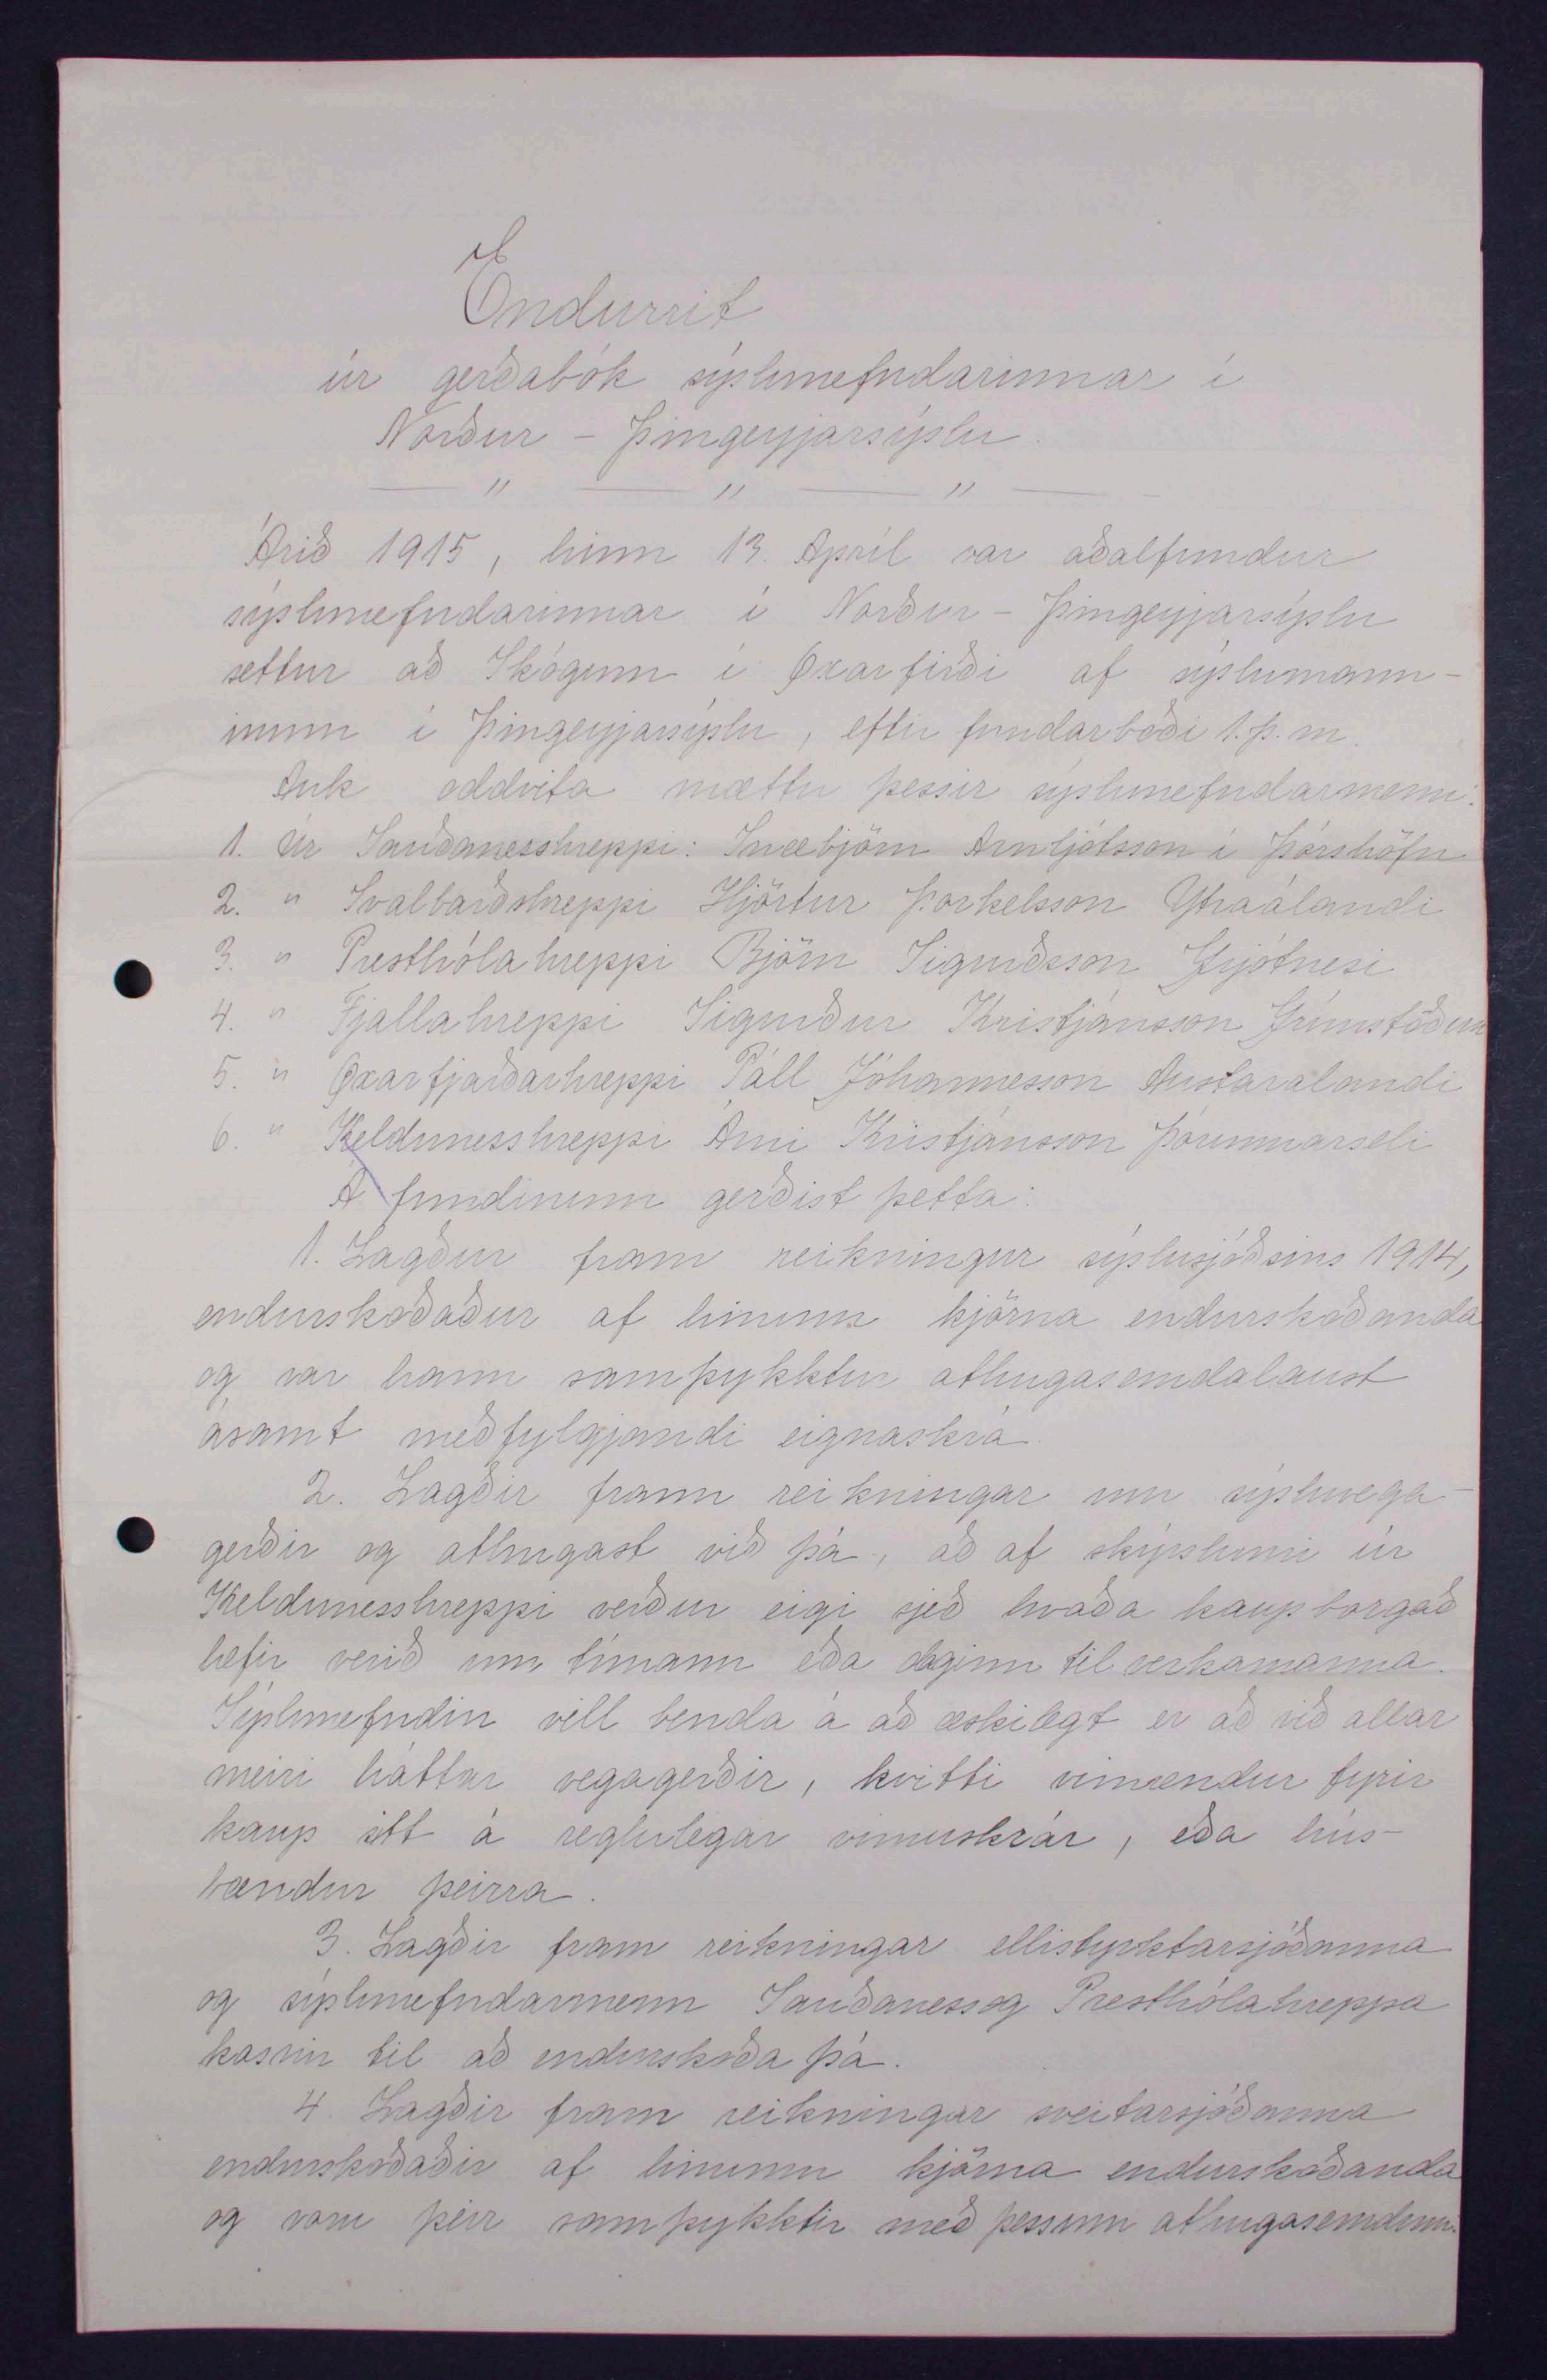 Endurrit
úr gerðabók sýslunefndarinnar í
Norður - Þingeyjarsýslu.
— " — " — " —
Árið 1915, hinn 13. Apríl var aðalfundur
sýslunefndarinnar í Norður - Þingeyjarsýslu
settur að Skógum í Øxarfirði af sýslumann-
inum í Þingeyjarsýslu, eftir fundarboði 1. þ. m.
Auk oddvita mættu þessir sýslunefndarmenn:
1. Úr Sauðanesshreppi: Snæbjörn Arnljótsson í Þórshöfn
2. " Svalbarðshreppi Hjörtur Þorkelsson Ytraálandi
3. " Presthólahreppi Björn Sigurðsson Grjótnesi
4. " Fjallahreppi Sigurður Kristjánsson Grímstöðum
5. " Øxarfjarðarhreppi Páll Jóhannesson Austaralandi
6. " Keldunesshreppi Árni Kristjánsson Þórunnarseli
Á fundinum gerðist þetta:
1. Lagður fram reikningur sýslusjóðsins 1914,
endurskoðaður af hinum kjörna endurskoðanda
og var hann samþykktur athugasemdalaust
ásamt meðfylgjandi eignaskrá.
2. Lagðir fram reikningar um sýsluvega-
gerðir og athugast við þá, að af skýrslunni úr
Keldunesshreppi verður eigi sjeð hvaða kaup borgað
hefir verið um tímann eða daginn til verkamanna.
Sýslunefndin vill benda á að æskilegt er að við allar
meiri háttar vegagerðir, kvitti vinnendur fyrir
kaup sitt á reglulegar vinnuskrár, eða hús-
bændur þeirra.
3. Lagðir fram reikningar ellistyrktarsjóðanna
og sýslunefndarmenn Sauðaness og Presthólahreppa
kosnir til að endurskoða þá.
4. Lagðir fram reikningar sveitarsjóðanna
endurskoðaðir af hinum kjörna endurskoðanda
og voru þeir samþykktir með þessum athugasemdum: